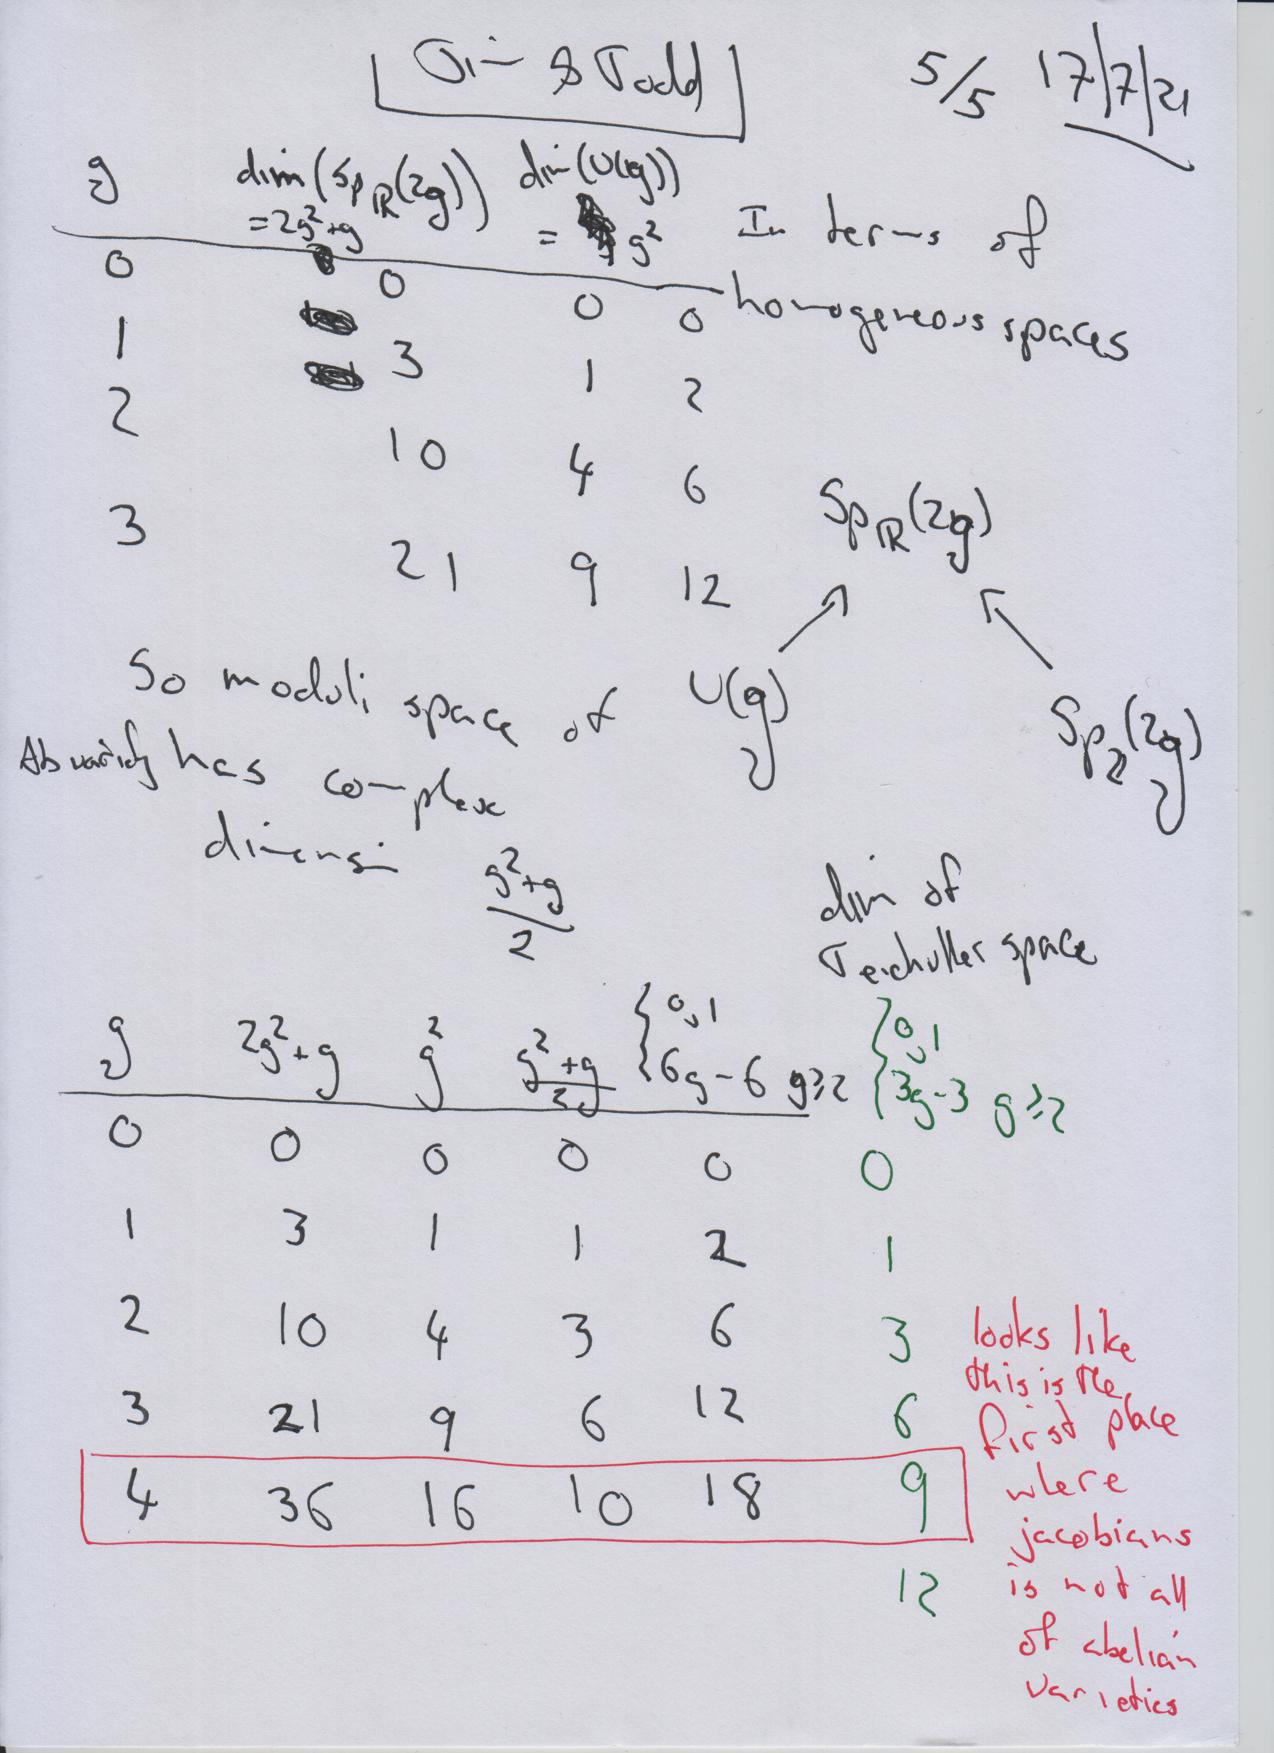 Jim & Todd 5/5 17/7/21
g dim(Sp_ℝ(2g)) = 2g²+g dim(U(g)) = g²
0 0 0 0
1 3 1 2
2 10 4 6
3 21 9 12
In terms of
homogeneous spaces
Sp_ℝ(2g)
U(g) Sp_ℤ(2g)
So moduli space of
Ab variety has complex
dimensi
g²+g
2
dim of
Teichuller space
g 2g²+g g² g²+g/2 { 0,1 6g-6 g≥2 { 0,1 3g-3 g≥2
0 0 0 0 0 0
1 3 1 1 2 1
2 10 4 3 6 3
3 21 9 6 12 6
4 36 16 10 18 9
12
looks like
this is the
first place
where
jacobians
is not all
of abelian
varieties